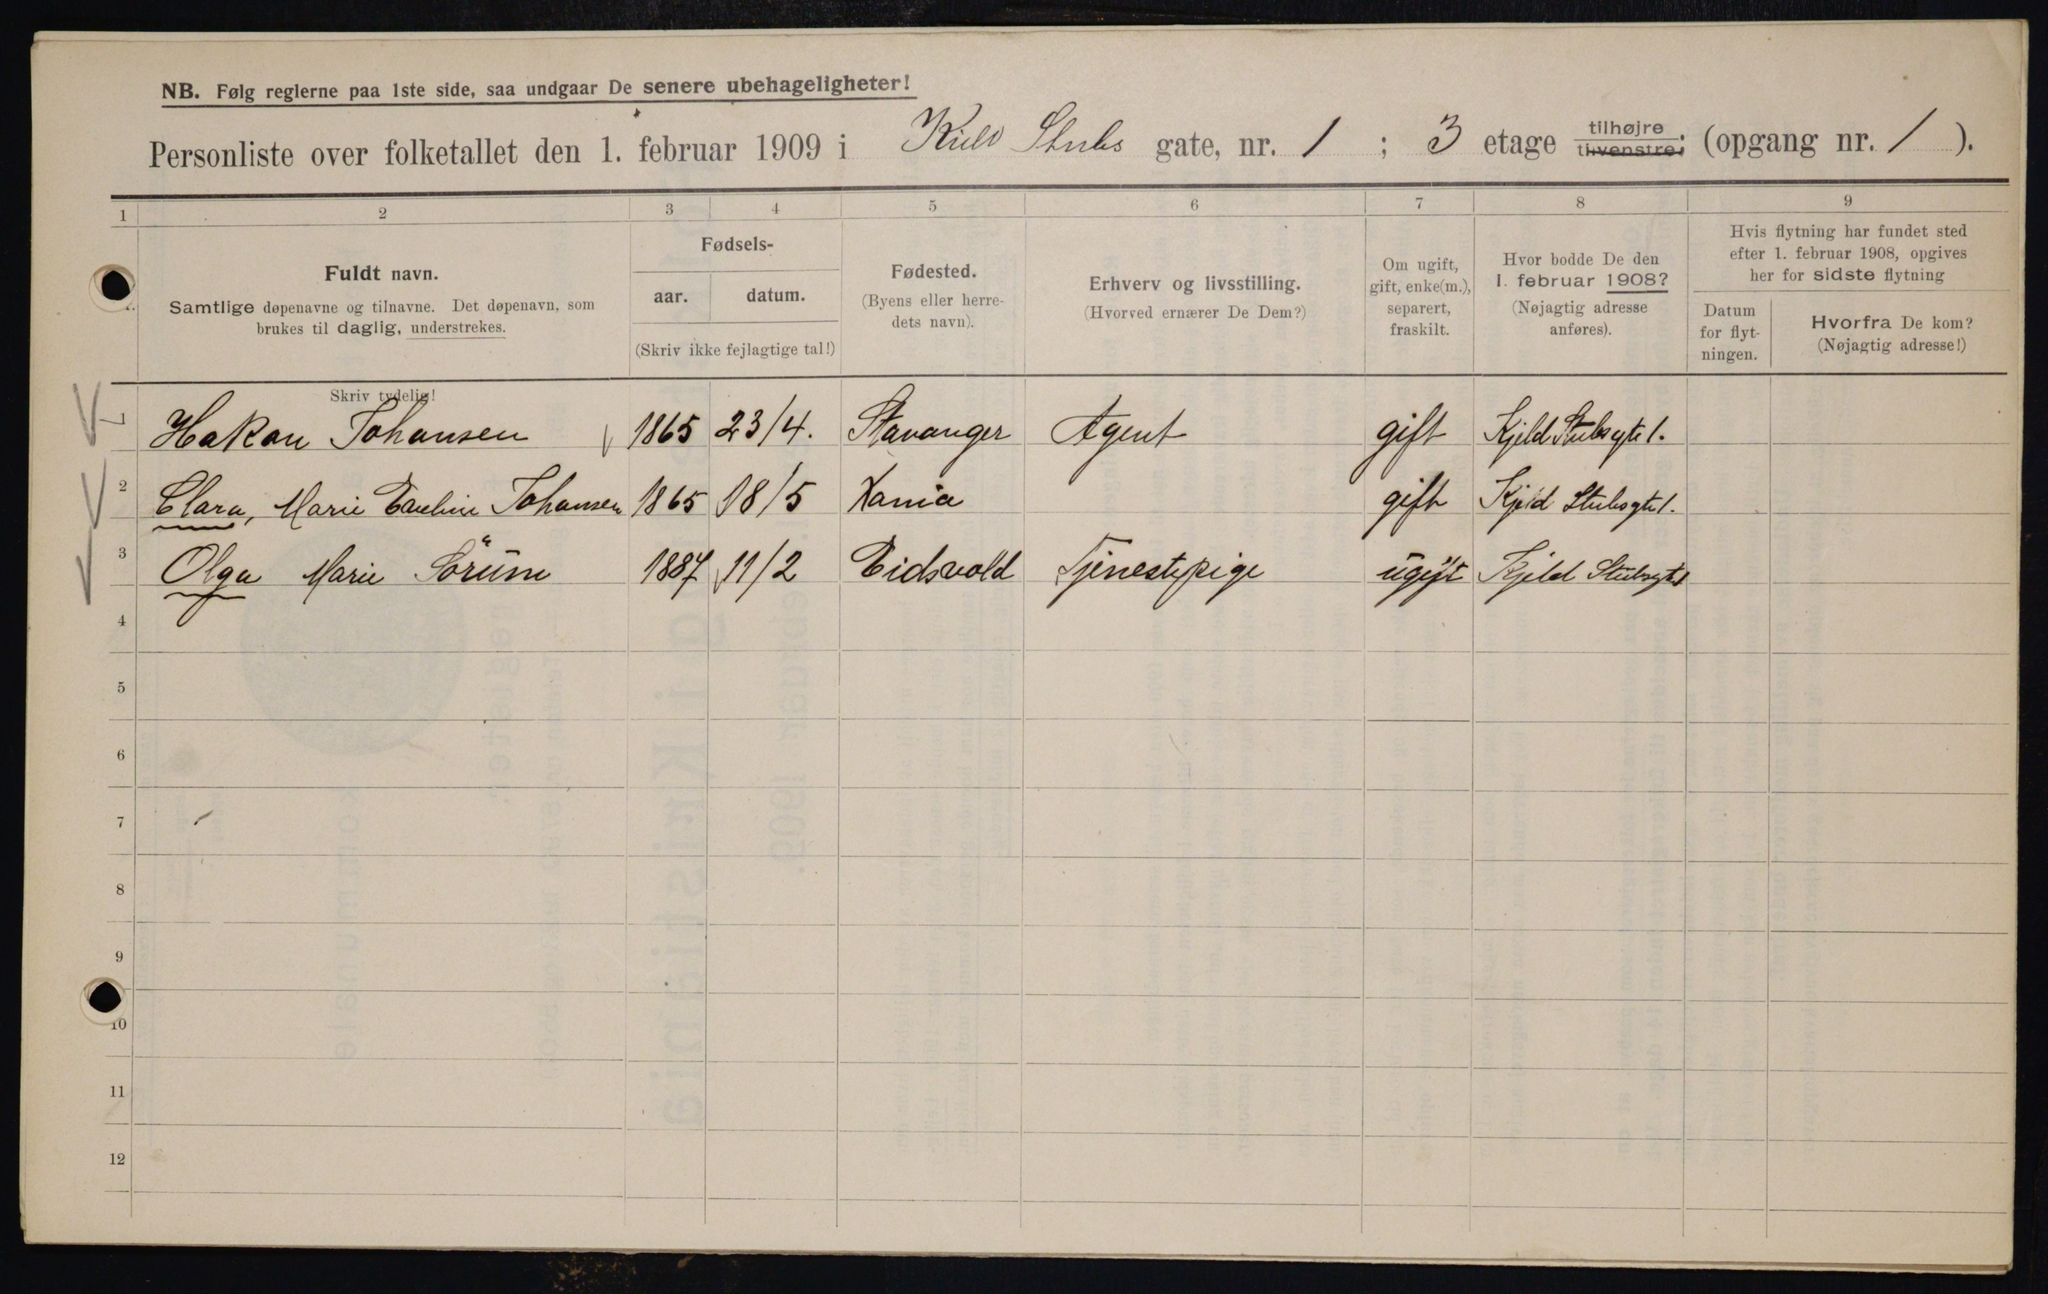 NB. Følg reglerne paa 1ste side, saa undgaar De senere ubehageligheter!
Personliste over folketallet den 1. februar 1909 i Kield Stubs gate, nr. 1 ; 3 etage tilhøjre tilvenstre; (opgang nr. 1 ).
1 2 3 4 5 6 7 8 9
Fuldt navn.
Samtlige døpenavne og tilnavne. Det døpenavn, som
brukes til daglig, understrekes.
Skriv tydelig!
Fødsels-
aar. datum.
(Skriv ikke fejlagtige tal!)
Fødested.
(Byens eller herre-
dets navn).
Erhverv og livsstilling.
(Hvorved ernærer De Dem?)
Om ugift,
gift, enke(m.),
separert,
fraskilt.
Hvor bodde De den
1. februar 1908?
(Nøjagtig adresse
anføres).
Hvis flytning har fundet sted
efter 1. februar 1908, opgives
her for sidste flytning
Datum
for flyt-
ningen.
Hvorfra De kom?
(Nøjagtig adresse!)
1 Hakon Johansen 1865 23/4. Stavanger Agent gift Kjeld Stubsgte 1.
2 Clara, Marie Pauline Johansen 1865 18/5 Xania gift Kjeld Stubsgte 1.
3 Olga Marie Sörum 1887 11/2 Eidsvold Tjenestepige ugift Kjeld Stubsgt 1
4
5
6
7
8
9
10
11
12